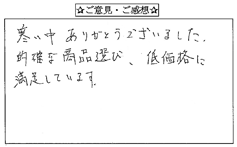 ☆ご意見・ご感想☆
寒い中 ありがとうございました.
的確な商品選び、低価格に
満足しています.